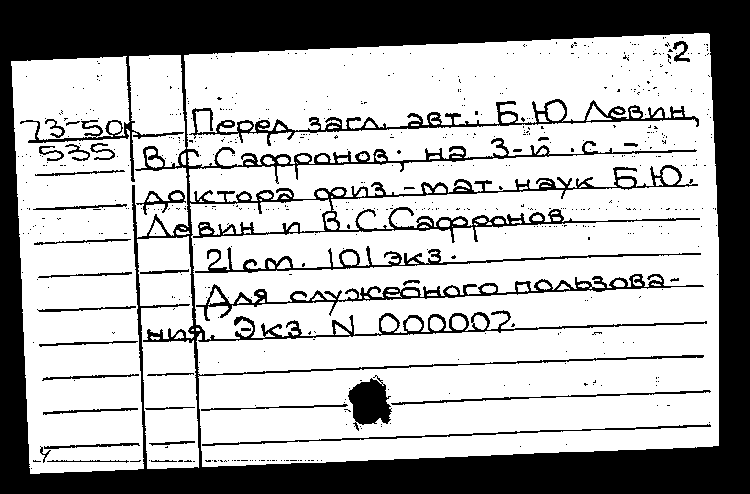 2
73-50к Перед загл. авт.: Б.Ю Левин,
535 В.С.Сафронов; на 3-й .с. -
доктора физ.-мат. наук Б.Ю.
Левин и В.С.Сафронов.
21 cm. 101 экз.
Для служебного пользова-
ния. Экз. N 000007.